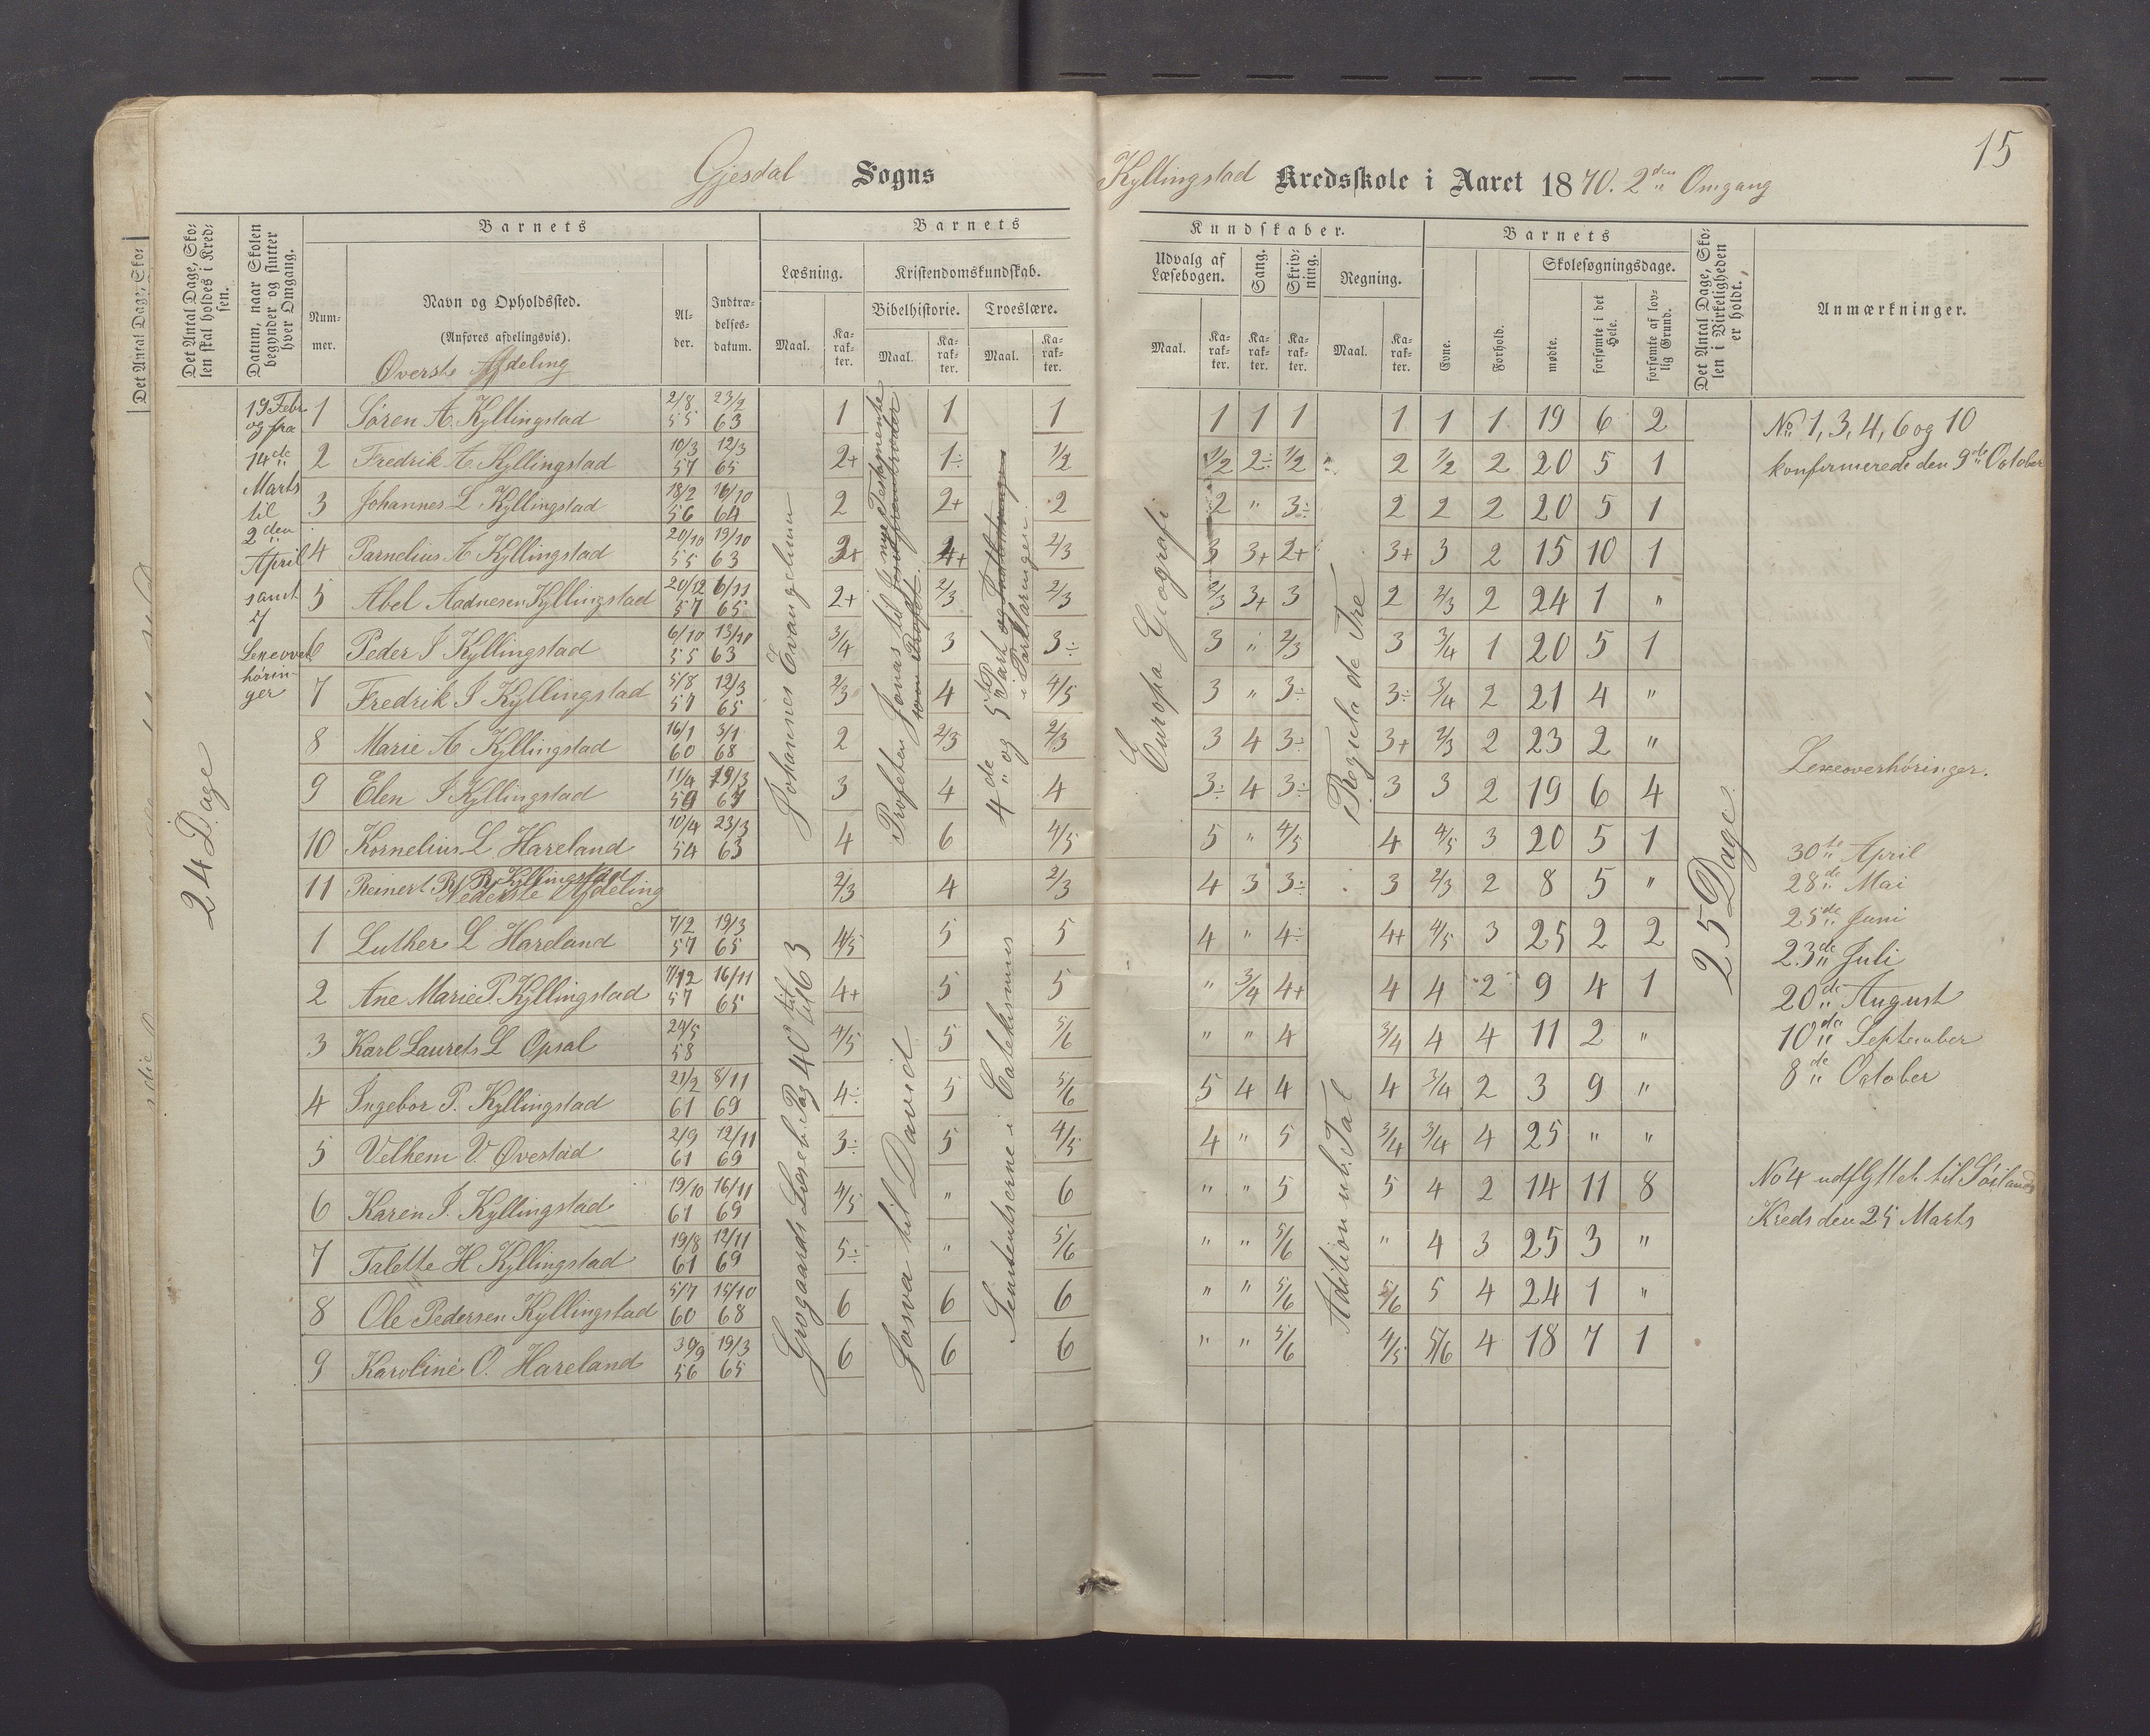 15
Gjesdal Sogns Kyllingstad Kredsskole i Aaret 1870. 2den Omgang
Det Antal Dage, Sko-
Det Antal Dage, Sko-
len skal holdes i Kred-
sen.
Datum, naar Skolen
begynder og slutter
hver Omgang.
Barnets
Barnets
Kundskaber.
Barnets
Det Antal Dage, Sko-
len i Virkeligheden
er holdt.
Anmærkninger.
Num-
mer.
Navn og Opholdssted.
(Anføres afdelingsvis).
Al-
der.
Indtræ-
delses-
datum.
Læsning.
Kristendomskundskab.
Bibelhistorie.
Troeslære.
Maal.
Ka-
rak-
ter.
Maal.
Ka-
rak-
ter.
Maal.
Ka-
rak-
ter.
Udvalg af
Læsebogen.
Sang.
Skriv-
ning.
Regning.
Skolesøgningsdage.
Maal.
Ka-
rak-
ter.
Ka-
rak-
ter.
Ka-
rak-
ter.
Maal.
Ka-
rak-
ter.
Evne.
Forhold.
mødte.
forsømte i det
Hele.
forsømte af lov-
lig Grund.
24 Dage
19 Febr
og fra
14de
Marts
til
2den
April
samt
7
Lexeover
hørin-
ger
Øverste Afdeling
1 Søren A. Kyllingstad 2/8 55 23/2 63 1 1 1 1 1 1 1 1 1 19 6 2
2 Fredrik A. Kyllingstad 10/3 57 12/3 65 2+ 1÷ 1/2 1/2 2÷ 1/2 2 1/2 2 20 5 1
3 Johannes L Kyllingstad 18/2 56 16/10 64 2 2+ 2 2 " 3÷ 2 2 2 20 5 1
4 Parnelius A Kyllingstad 20/10 55 19/10 63 2/3 3 3+ 2+ 3+ 3 2 15 10 1
5 Abel Aadnesen Kyllingstad 20/12 57 6/11 65 2+ 2/3 2/3 2/3 3+ 3 2 2/3 2 24 1 "
6 Peder I Kyllingstad 6/10 55 13/10 63 3/4 3 3÷ 3 " 2/3 3 3/4 1 20 5 1
7 Fredrik I Kyllingstad 5/8 57 12/3 65 2/3 4 4/5 3 " 3÷ 3÷ 3/4 2 21 4 "
8 Marie A Kyllingstad 16/1 60 3/1 68 2 2/3 2/3 3 4 3÷ 3+ 2/3 2 23 2 "
9 Elen I Kyllingstad 11/4 59 19/3 67 3 4 4 3÷ 4 3÷ 3 3 2 19 6 4
10 Kornelius L Hareland 10/4 54 23/3 63 4 6 4/5 5 " 4/5 4 4/5 3 20 5 1
11 Reinert R. Kyllingstad 2/3 4 2/3 4 3 3÷ 3 2/3 2 8 5 "
Nederste Afdeling
1 Luther L Hareland 7/2 57 19/3 65 4/5 5 5 4 " 4÷ 4+ 4/5 3 25 2 2
2 Ane Marie P. Kyllingstad 7/12 57 16/11 65 4+ 5 5 " 3/4 4+ 4 4 2 9 4 1
3 Karl Laurets L Opsal 24/5 58 4/5 5 5/6 " " 4 3/4 4 4 11 2 "
4 Ingebor P. Kyllingstad 21/2 61 8/11 69 4÷ 5 5/6 5 4 4 4 3/4 2 3 9 "
5 Velhem V. Øvestad 2/9 61 12/11 69 3÷ 5 4/5 4 " 5 3/4 3/4 4 25 " "
6 Karen I. Kyllingstad 19/10 61 16/11 69 4/5 " 6 " " 5 5 4 2 14 11 8
7 Talette H Kyllingstad 19/8 61 12/11 69 5÷ " 5/6 " " 5/6 " 4 3 25 3 "
8 Ole Pedersen Kyllingstad 5/7 60 15/10 68 6 6 6 " " 5/6 5/6 5 4 24 1 "
9 Karoline O. Hareland 30/9 56 19/3 65 6 6 6 " " 5/6 4/5 5/6 4 18 7 1
Johannes Evangelium
Profeten Jonas til nye Testamente
4de og 5te Part
i Forklaringen
Europa Geografi
Regula de Tre
Grogaards Læseb. Pag 40 til 63
Josva til David
Sententserne i Catekismus
Adition ub. Tal
25 Dage
No 1, 3, 4, 6 og 10
konfirmerede den 9de October
Lexeoverhøringer.
30te April
28de Mai
25de Juni
23de Juli
20de August
10de September
8de October
No 4 udflyttet til Søilands
Kreds den 25 Marts